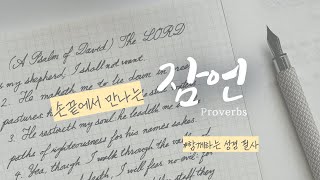 (A Psalm of David) The LORD
is my shepherd, I shall not want.
2. He maketh me to lie down in green
pastures
손끝에서 만나는
잠언
Proverbs
3. He restoreth my soul: he leadeth me
paths of righteousness for his names sakes.
#함께하는 성경 필사
4. Yea, though I walk through the
death, I will fear no evil: for